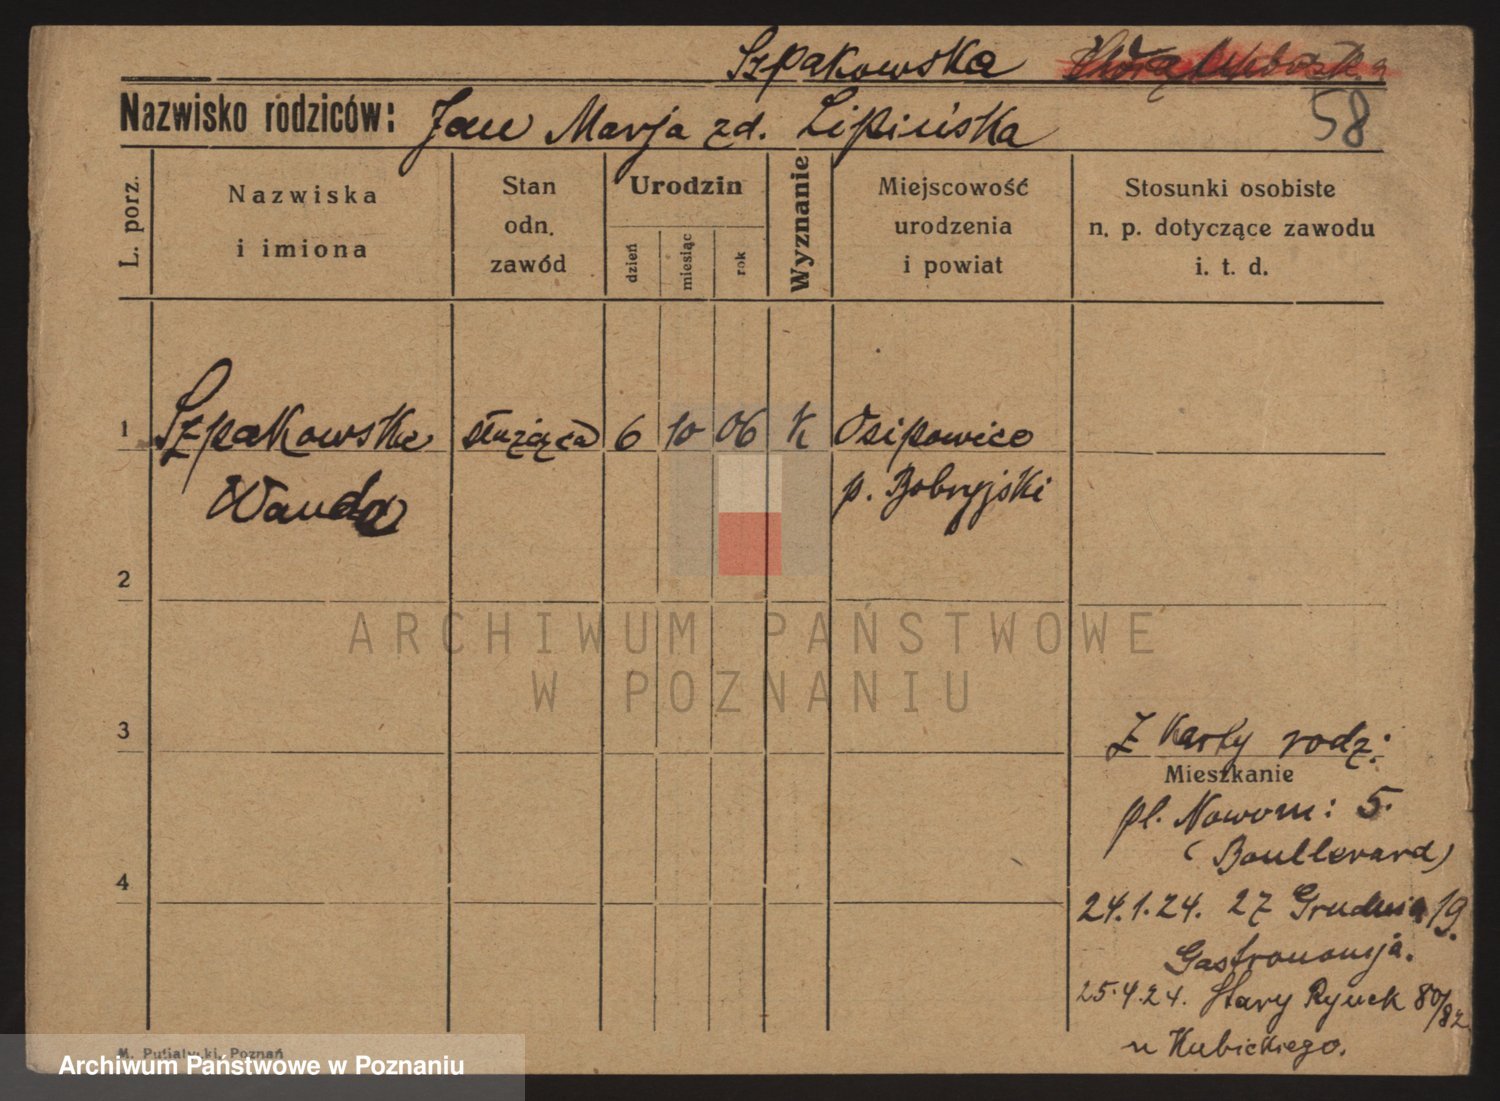 Szpakowska
58
Nazwisko rodziców: Jan Marja zd. Lipińska
L. porz.
Nazwiska
i imiona
Stan
odn.
zawód
Urodzin
dzień
miesiąc
rok
Wyznanie
Miejscowość
urodzenia
i powiat
Stosunki osobiste
n. p. dotyczące zawodu
i. t. d.
1 Szpakowska służąca 6 10 06 K Osipowice
Wanda p. Bobryjski
2
ARCHIWUM PAŃSTWOWE
W POZNANIU
3
Z Karty rodz:
Mieszkanie
pl. Nowom: 5.
(Boullevard)
4
24.1.24. 27 Grudnia 19.
Gastronomja.
25.4.24. Stary Rynek 80/82
u Kubickiego.
M. Putiatycki, Poznań
Archiwum Państwowe w Poznaniu